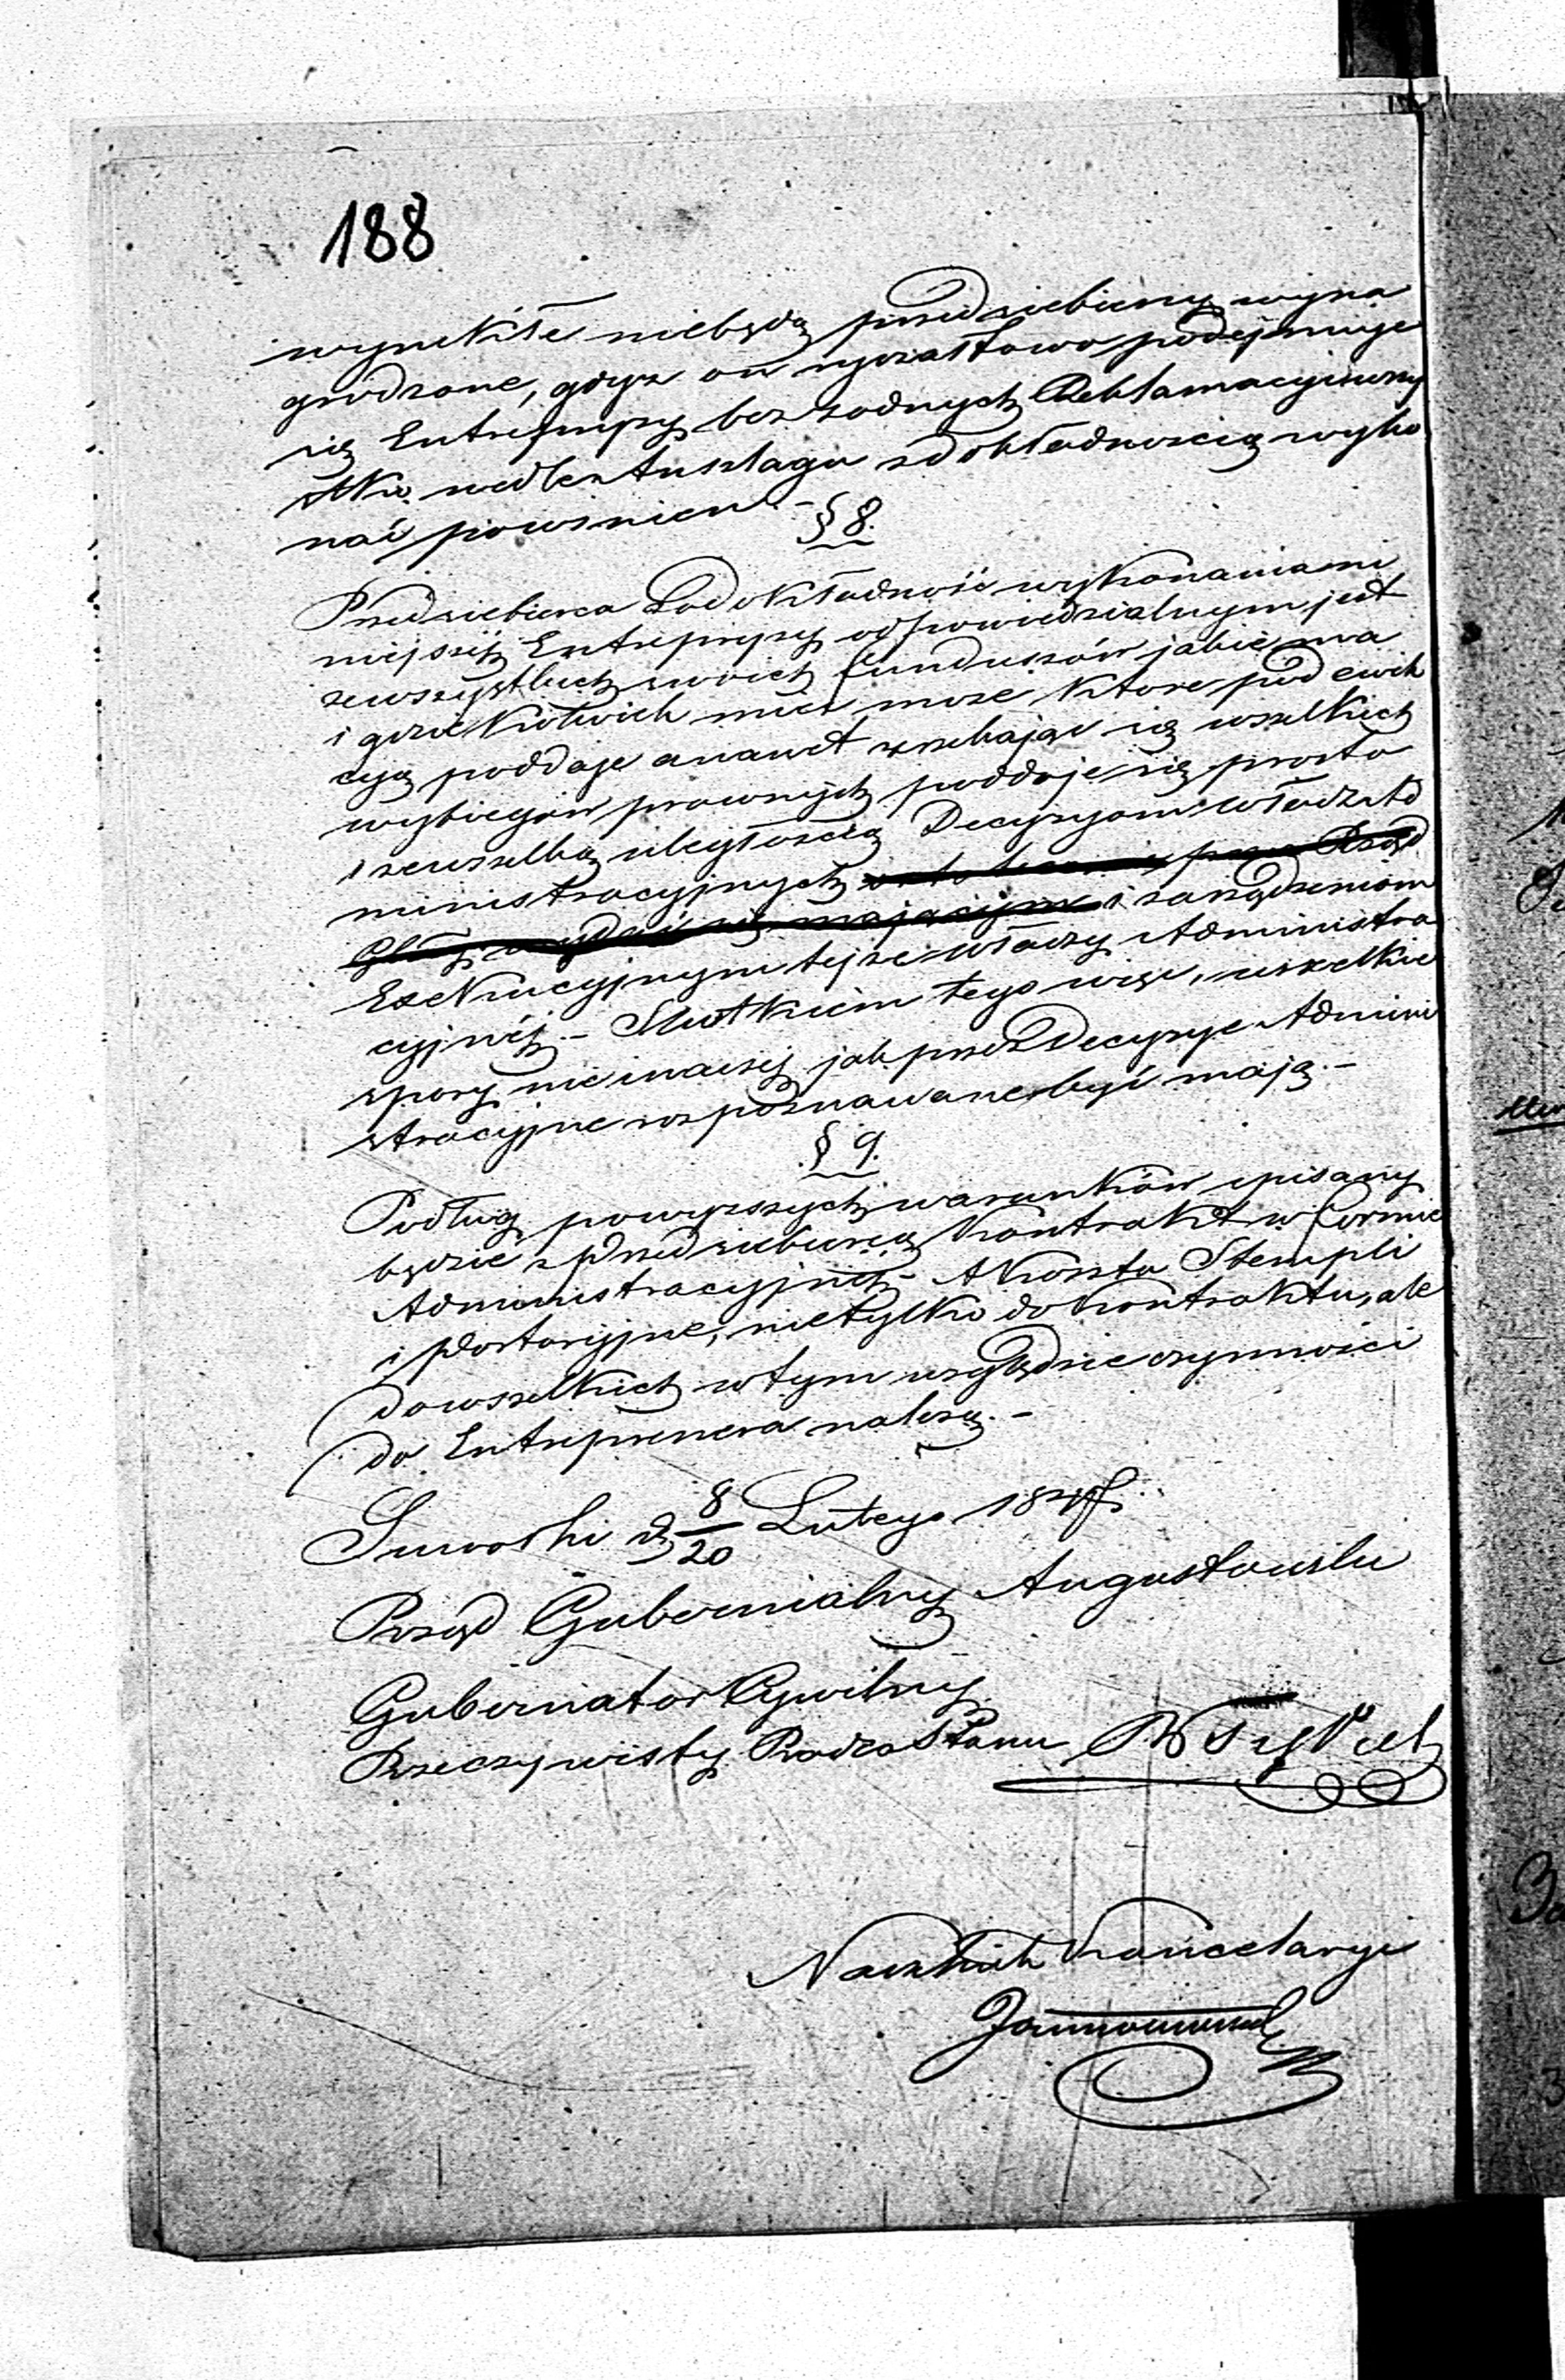 188
wynikłe niebędą przedsiebiercy wyna
grodzone, gdyż on ryczałtowo podejmuje
się Entrepryzy bez żadnych Reklamacyi
wedle Anszlagu zdokładnością wyko
nać powinien.-
§ 8.
Przedsiebierca za dokładność wykonania ni
niejszéj Entrepryzy odpowiedzialnym jest
zewszystkich swoich funduszów jakie ma
i gdziekolwiek mieć może które pod exek
cyą poddaje a nawet zrzekając się wszelkich
wybiegów prawnych poddaje się prosto
i zewszelką uległością Decyzyom Władz Ad
ministracyjnych i zarządzeniom
Exekucyjnym tejże Władzy Administra
cyjnéj.- Skutkiem tego więc, wszelkie
spory nie inaczéj jak przez Decyzye Admini
stracyjne rozpoznawane być mają.-
§ 9.
Podług powyższych warunków spisany
będzie z Przedsiebiercą Kontrakt w formie
Administracyjnéj.- A Koszta Stempli
i Portoryjne, nietylko do Kontraktu, ale
do wszelkich w tym względzie czynności
do Entreprenera należą.-
Suwałki d. 8/20 Lutego
Rząd Gubernialny Augustowski
Gubernator Cywilny
Rzeczywisty Radca Stanu
Naczelnik Kancelaryi